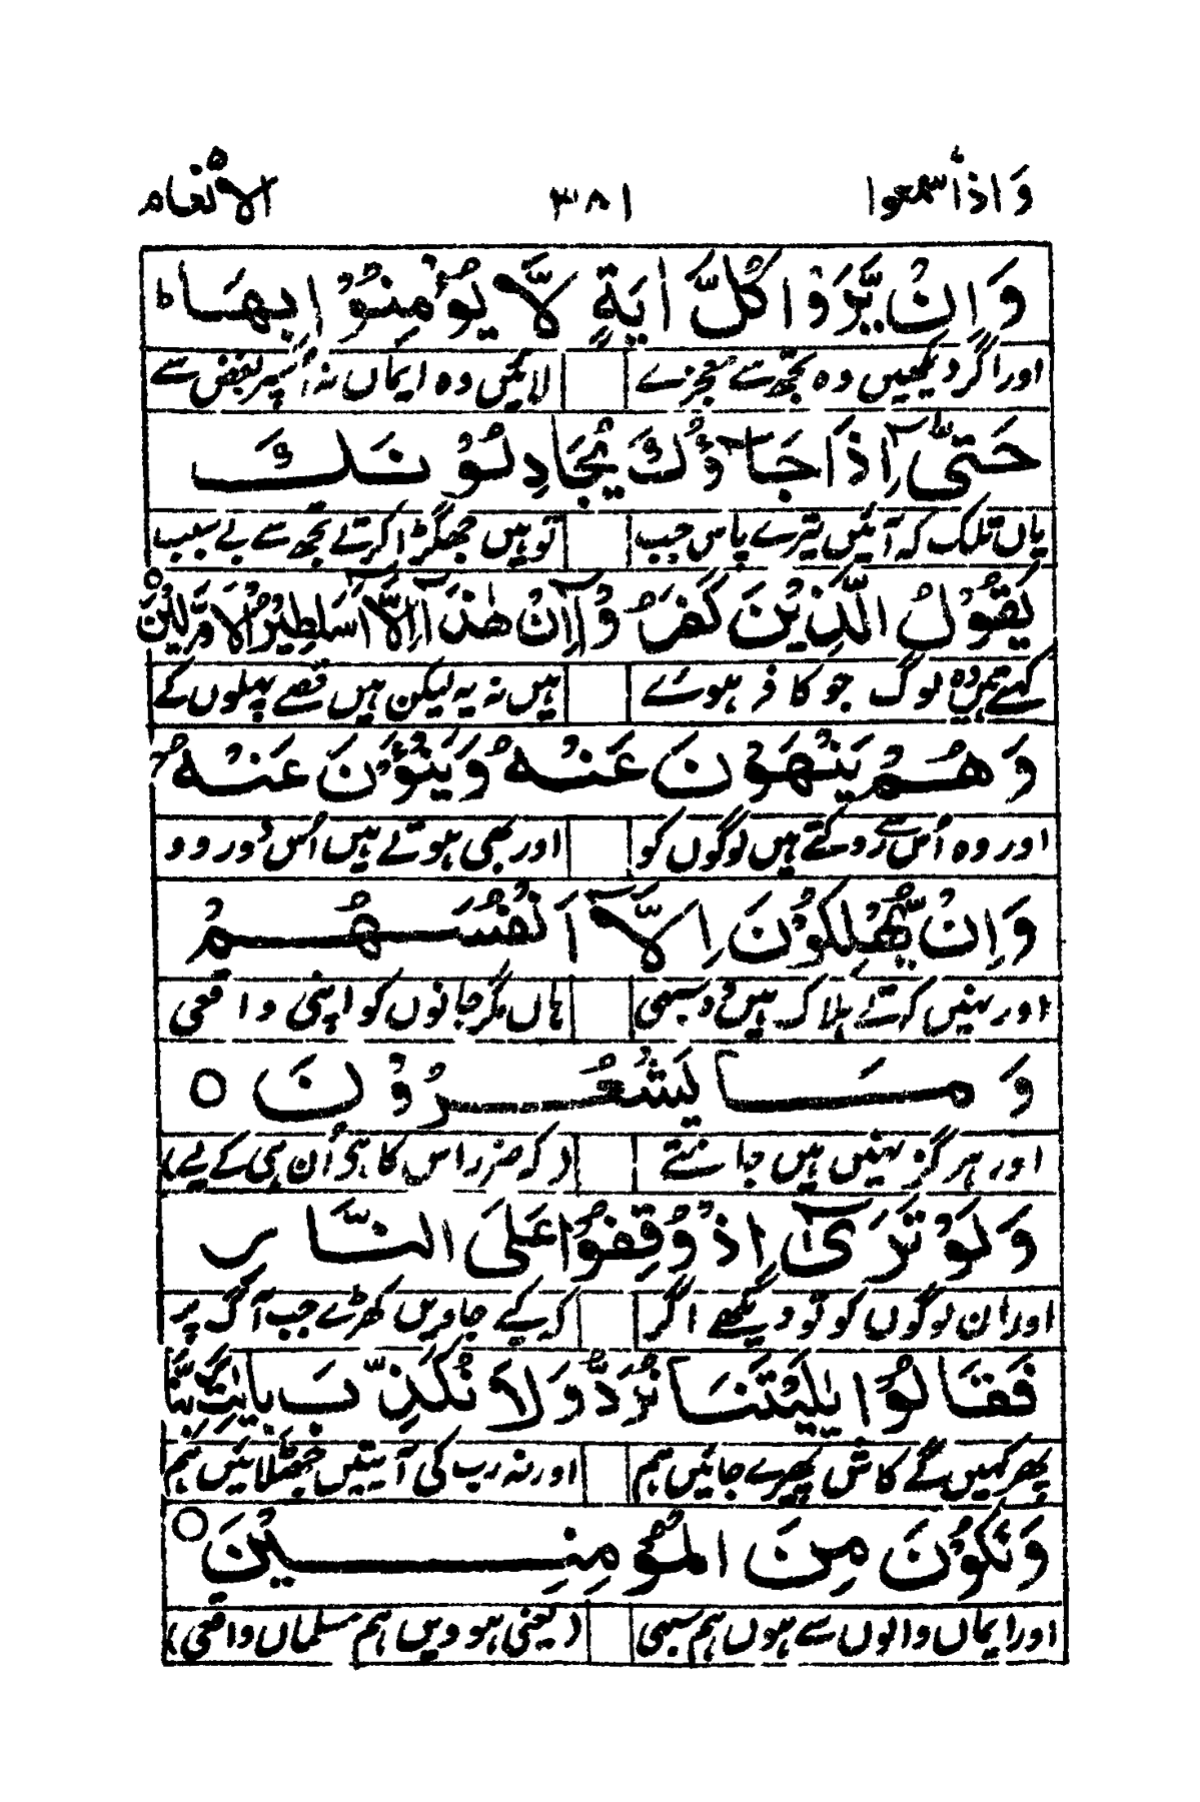 واذاسمعوا ۳۸۱ الانعام
وَاِنْ يَّرَوْا كُلَّ اٰيَةٍ لَّا يُؤْمِنُوْا بِهَا ط
اور اگر دیکھیں وہ تجھ سے معجزے لائیں وہ ایماں نہ اُسپر بغض سے
حَتّٰى اِذَا جَآءُوْكَ يُجَادِلُوْنَكَ
یاں تلک کہ آئیں تیرے پاس جب تو ہیں جھگڑا کرتے تجھ سے بے سبب
يَقُوْلُ الَّذِيْنَ كَفَرُوْٓا اِنْ هٰذَآ اِلَّآ اَسَاطِيْرُ الْاَوَّلِيْنَ ○
کہتے ہیں وہ لوگ جو کافر ہوئے ہیں نہ یہ لیکن ہیں قصے پہلوں کے
وَهُمْ يَنْهَوْنَ عَنْهُ وَيَنْـَٔوْنَ عَنْهُ ج
اور وہ اُس سے روکتے ہیں لوگوں کو اور بھی ہوتے ہیں اُس سے دور وو
وَاِنْ يُّهْلِكُوْنَ اِلَّآ اَنْفُسَهُمْ
اور نہیں کرتے ہلاک ہیں وہ سبھی ہاں مگر جانوں کو اپنی واقعی
وَمَا يَشْعُرُوْنَ ○
اور ہرگز نہیں ہیں جانتے (کہ ضرر اس کا ہی اُن ہی کے لیے)
وَلَوْ تَرٰٓى اِذْ وُقِفُوْا عَلَى النَّارِ
اور ان لوگوں کو تو دیکھے اگر کہ کیے جاویں کھڑے جب آگ پر
فَقَالُوْا يٰلَيْتَنَا نُرَدُّ وَلَا نُكَذِّبَ بِاٰيٰتِ رَبِّنَا
پھر کہیں گے کاش پھیرے جائیں ہم اور نہ رب کی آیتیں جھٹلائیں ہم
وَنَكُوْنَ مِنَ الْمُؤْمِنِيْنَ ○
اور ایماں والوں سے ہوں ہم سبھی (یعنی ہوویں ہم مسلماں واقعی)